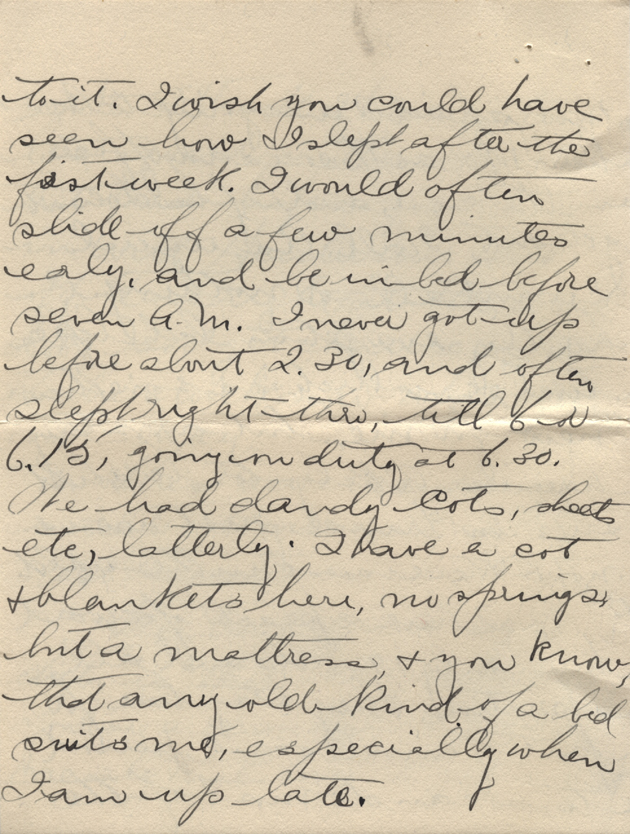 to it. I wish you could have
seen how I slept after the
first week. I would often
slide off a few minutes
ealy, and be in bed before
seven A.M. I never got up
before about 2.30, and often
slept right thro, till 6 or
6.15, going on duty at 6.30.
We had dandy cots, sheets
etc, latterly. I have a cot
+ blankets here, no springs,
but a mattress, + you know,
that any old kind of a bed
suits me, especially when
I am up late.